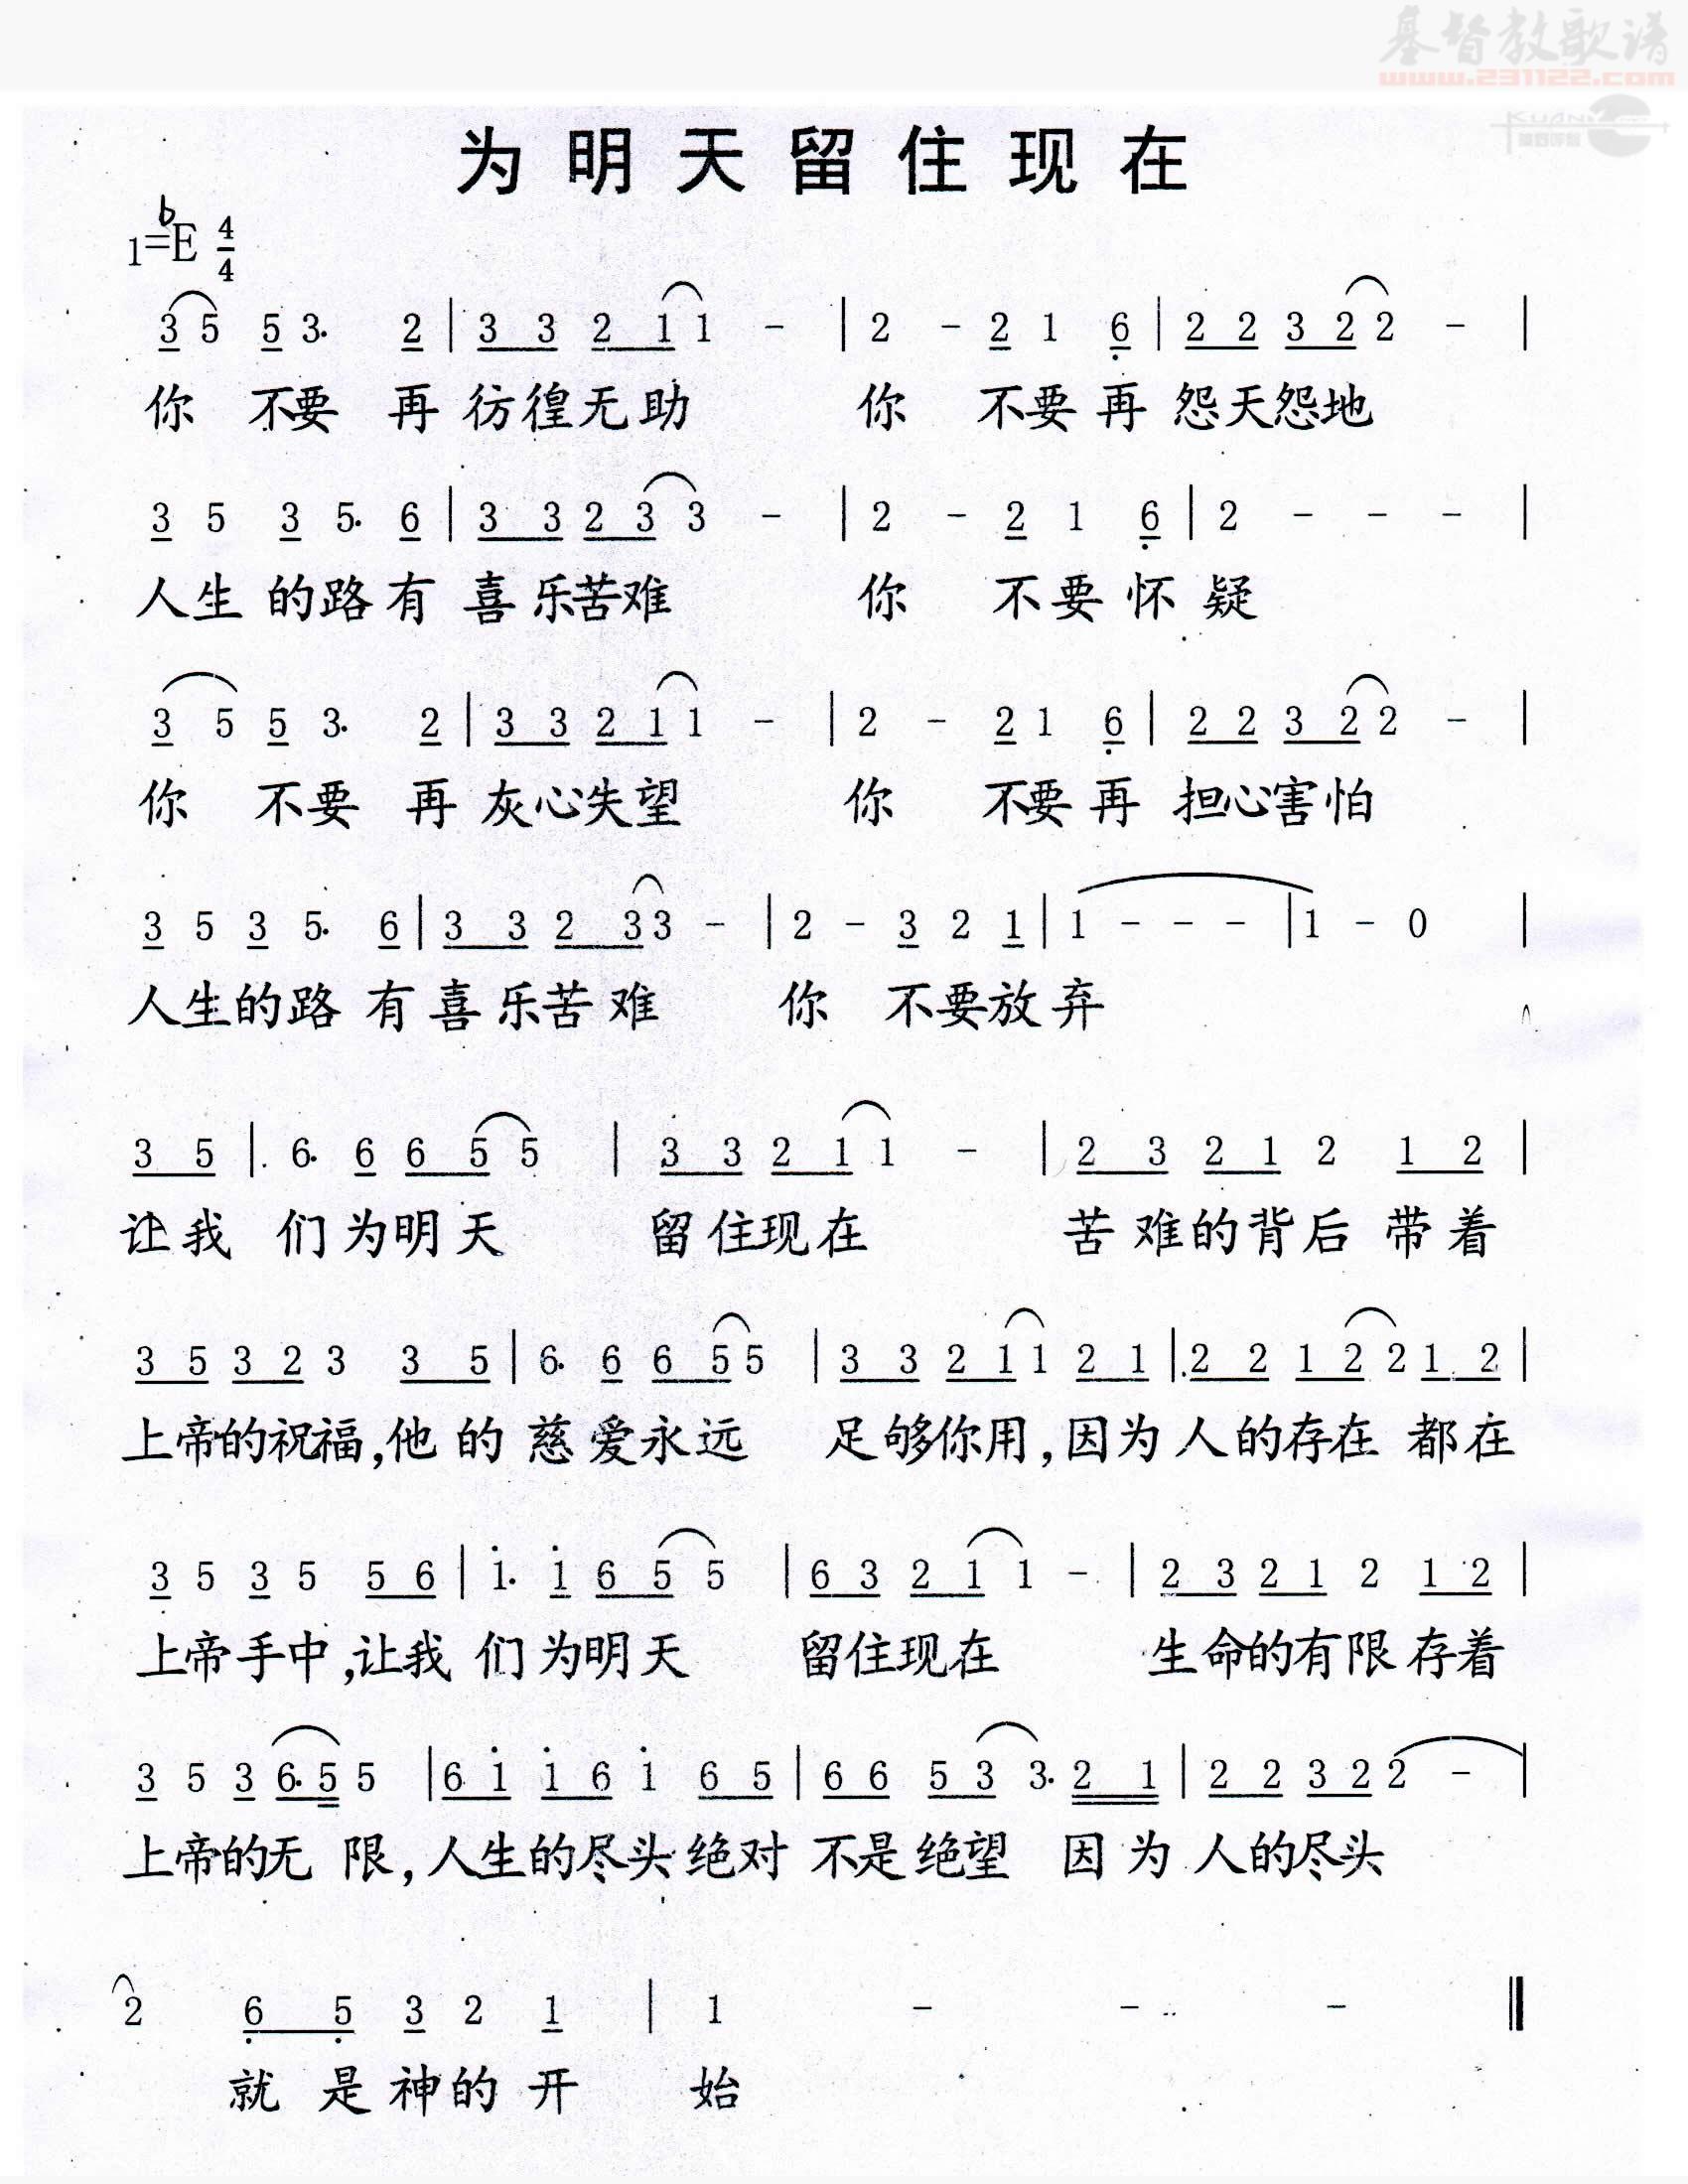 基督教歌谱
www.231122.com
为明天留住现在
1=bE 4/4
3 5 5 3. 2 | 3 3 2 1 1 - | 2 - 2 1 6 | 2 2 3 2 2 - |
你 不要 再 彷徨无助 你 不要再 怨天怨地
3 5 3 5. 6 | 3 3 2 3 3 - | 2 - 2 1 6 | 2 - - - |
人生 的路有 喜乐苦难 你 不要怀 疑
3 5 5 3. 2 | 3 3 2 1 1 - | 2 - 2 1 6 | 2 2 3 2 2 - |
你 不要 再 灰心失望 你 不要再 担心害怕
3 5 3 5. 6 | 3 3 2 3 3 - | 2 - 3 2 1 | 1 - - - | 1 - 0 |
人生的路 有喜乐苦难 你 不要放弃
3 5 | 6. 6 6 5 5 | 3 3 2 1 1 - | 2 3 2 1 2 1 2 |
让我 们为明天 留住现在 苦难的背后 带着
3 5 3 2 3 3 5 | 6. 6 6 5 5 | 3 3 2 1 1 2 1 | 2 2 1 2 2 1 2 |
上帝的祝福,他的 慈爱永远 足够你用,因为人的存在 都在
3 5 3 5 5 6 | i. i 6 5 5 | 6 3 2 1 1 - | 2 3 2 1 2 1 2 |
上帝手中,让我 们为明天 留住现在 生命的有限存着
3 5 3 6. 5 5 | 6 i i 6 i 6 5 | 6 6 5 3 3. 2 1 | 2 2 3 2 2 - |
上帝的无 限,人生的尽头绝对 不是绝望 因为人的尽头
2 6 5 3 2 1 | 1 - - - ‖
就是神的开 始